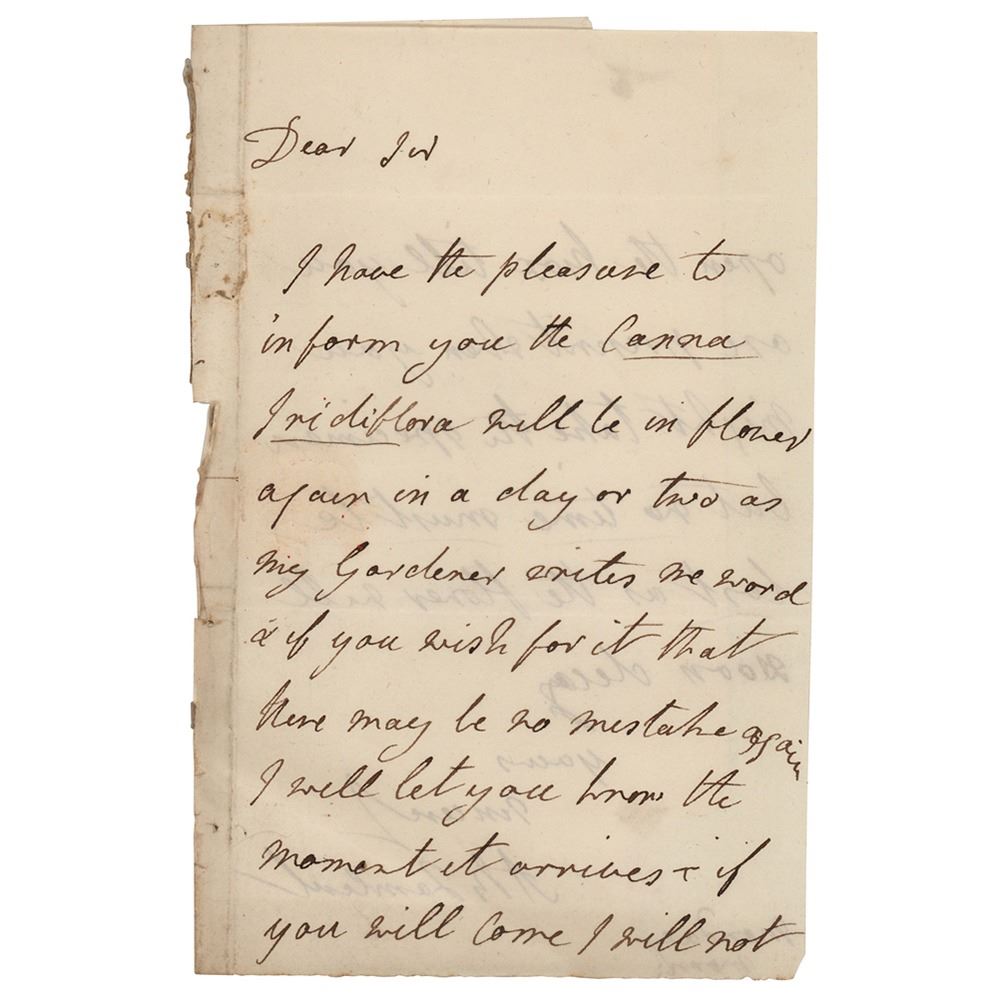 Dear Sir
I have the pleasure to
inform you the Canna
Iridiflora will be in flower
again in a day or two as
my Gardener writes me word
& if you wish for it that
there may be no mistake again
I will let you know the
moment it arrives & if
you will come I will not